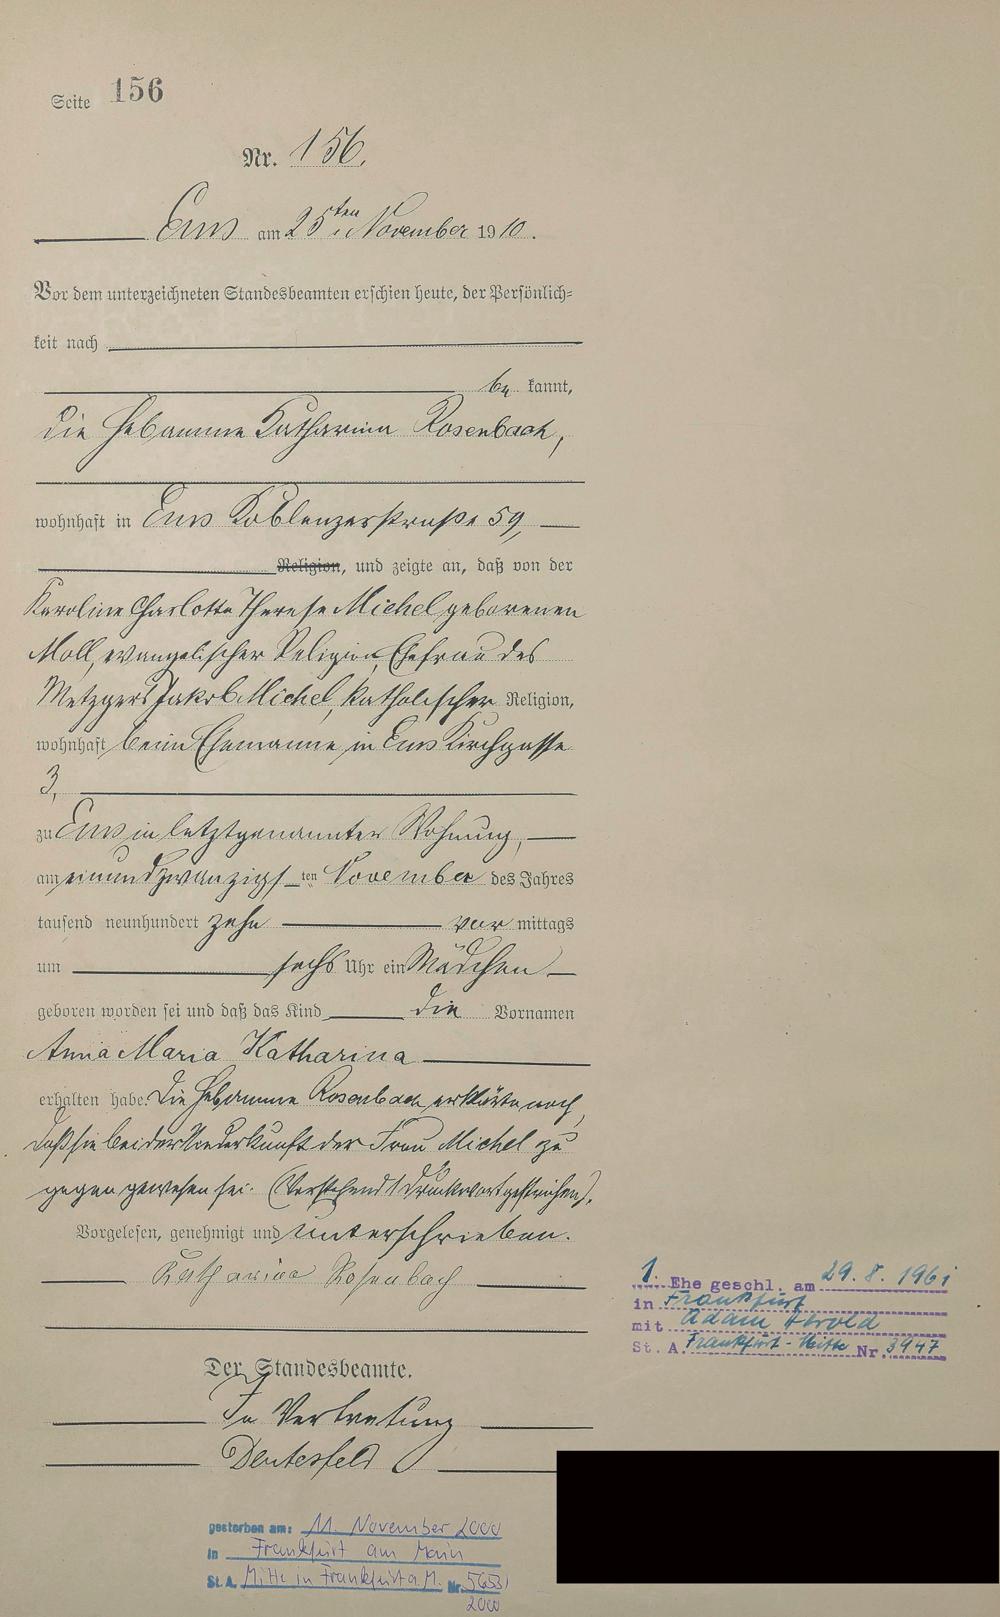 Seite 156
Nr. 156.
Ems am 25ten November 1910.
Vor dem unterzeichneten Standesbeamten erschien heute, der Persönlich-
keit nach
be kannt,
die Hebamme Katharina Rosenbach,
wohnhaft in Ems Koblenzerstraße 59,
Religion, und zeigte an, daß von der
Karoline Charlotte Therese Michel geborenen
Moll, evangelischer Religion, Ehefrau des
Metzgers Jakob Michel, katholischer Religion,
wohnhaft beim Ehemanne in Ems Kirchgasse
3,
zu Ems in letztgenannter Wohnung,
am einundzwanzigsten November des Jahres
tausend neunhundert zehn vor mittags
um sechs Uhr ein Mädchen
geboren worden sei und daß das Kind die Vornamen
Anna Maria Katharina
erhalten habe. Die Hebamme Rosenbach erklärte noch,
daß sie bei der Niederkunft der Frau Michel zu
gegen gewesen sei. (Vorstehend 1 Druckwort gestrichen).
Vorgelesen, genehmigt und unterschrieben.
Katharina Rosenbach
Der Standesbeamte.
In Vertretung
1. Ehe geschl. am 29.8.1961
in Frankfurt
mit Adam Herold
St. A. Frankfurt-Mitte Nr. 3947
gestorben am: 11. November 2000
in Frankfurt am Main
St. A. Mitte in Frankfurt a. M. Nr.
2000